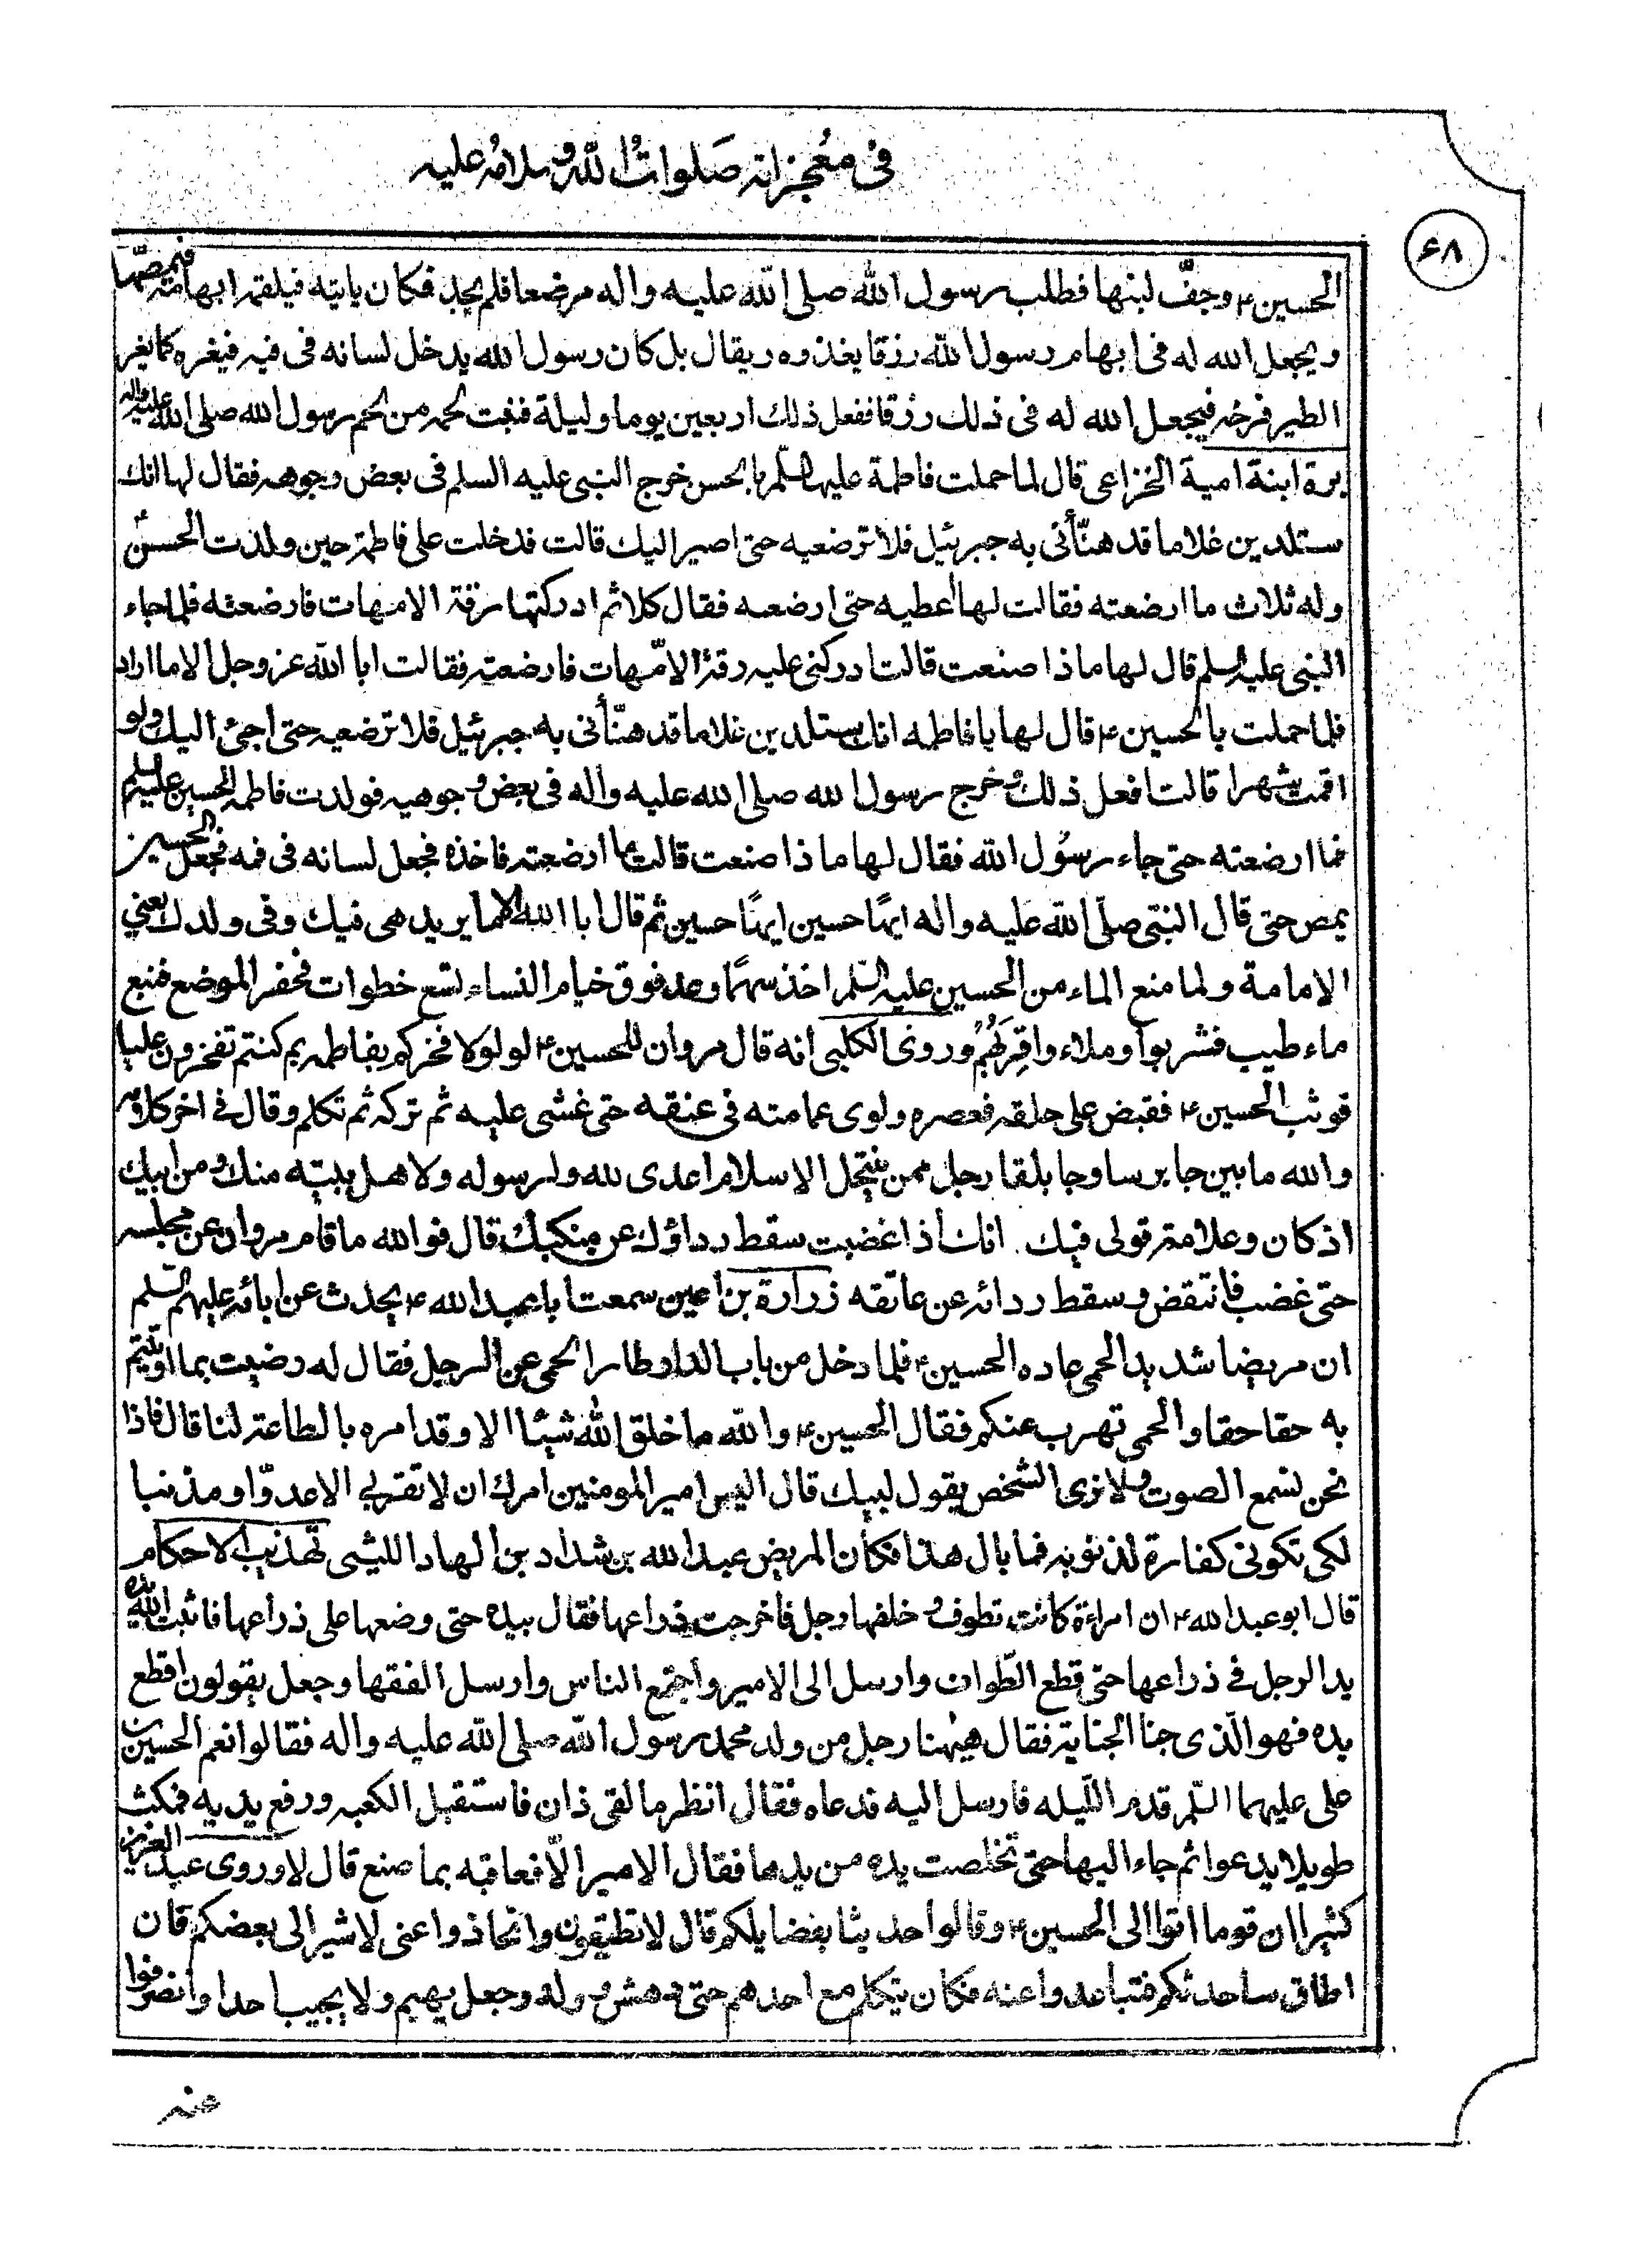 في معجزاته صلوات الله وسلامه عليه
۶۸
الحسين ع وجفّ لبنها فطلب رسول الله صلى الله عليه واله مرضعا فلم يجد فكان ياتيه فيلقمه ابهامه فيمصّها
ويجعل الله له في ابهام رسول الله رزقا يغذوه ويقال بل كان رسول الله يدخل لسانه في فيه فيغره كما يغر
الطير فرخه فيجعل الله له في ذلك رزقا ففعل ذلك اربعين يوما وليلة فنبت لحمه من لحم رسول الله صلى الله عليه واله
برة ابنة امية الخزاعي قال لما حملت فاطمة عليها السلم بالحسن خرج النبي عليه السلم في بعض وجوهه فقال لها انك
ستلدين غلاما قد هنّأني به جبرئيل فلا ترضعيه حتى اصير اليك قالت فدخلت على فاطمة حين ولدت الحسن ع
وله ثلاث ما ارضعته فقالت لها أعطيه حتى ارضعه فقال كلا ثم ادركتها رقة الامهات فارضعته فلما جاء
النبي عليه السلم قال لها ماذا صنعت قالت ادركني عليه رقة الامّهات فارضعته فقالت ابا الله عز وجل الا ما اراد
فلما حملت بالحسين ع قال لها يا فاطمه انك ستلدين غلاما قد هنّأني به جبرئيل فلا ترضعيه حتى اجئ اليك ولو
اقمت شهرا قالت افعل ذلك وخرج رسول الله صلى الله عليه واله في بعض وجوهيه فولدت فاطمه الحسين عليه السلم
فما ارضعته حتى جاء رسول الله فقال لها ماذا صنعت قالت ما ارضعته فاخذه فجعل لسانه في فمه فجعل الحسين
يمص حتى قال النبي صلّى الله عليه واله ايهًا حسين ايهًا حسين ثم قال ابا الله الا ما يريد هي فيك وفي ولدك يعني
الامامة ولما منع الماء من الحسين عليه السّلم اخذ سهمًا وعد فوق خيام النساء تسع خطوات فحفر الموضع فنبع
ماء طيب فشربوا وملاء واقِرَبَهُم وروى الكلبي انه قال مروان للحسين ع لو لولا فخركم بفاطمه بم كنتم تفخرون علينا
فوثب الحسين ع فقبض على حلقه فعصره ولوى عمامته في عنقه حتى غشى عليه ثم تركه ثم تكلم وقال في اخر كلامه
والله ما بين جابرسا وجابلقا رجل ممن ينتحل الاسلام اعدى لله ولرسوله ولاهل بيته منك ومن ابيك
اذ كان وعلامة قولي فيك انك اذا غضبت سقط رداؤك عن منكبك قال فو الله ما قام مروان عن مجلسه
حتى غضب فانتقض وسقط ردائه عن عاتقه زرارة بن اعين سمعت ابا عبد الله ع يحدث عن ابائه عليهم السّلم
ان مريضا شديد الحمى عاده الحسين ع فلما دخل من باب الدار طار الحمى عن الرجل فقال له رضيت بما اوتيتم
به حقا حقا والحمى تهرب عنكم فقال الحسين ع والله ما خلق الله شيئا الا وقد امره بالطاعة لنا قال فاذا
نحن نسمع الصوت ولا نرى الشخص يقول لبيك قال اليس امير المومنين امرك ان لا تقربي الا عدوّا او مذنبا
لكي تكوني كفارة لذنوبه فما بال هذا فكان المريض عبد الله بن شداد بن الهاد الليثي تهذيب الاحكام
قال ابو عبد الله ع ان امراءة كانت تطوف وخلفها رجل فاخرجت ذراعها فقال بيده حتى وضعها على ذراعها فاثبت الله يده
يد الرجل في ذراعها حتى قطع الطّواف وارسل الى الامير واجتمع الناس وارسل الفقها وجعل يقولون اقطع
يده فهو الّذي جنا الجناية فقال هيهنا رجل من ولد محمد رسول الله صلى الله عليه واله فقالوا نعم الحسين بن
على عليهما السّلم قدم اللّيله فارسل اليه فدعاه فقال انظر ما لقى ذان فاستقبل الكعبه ورفع يديه فمكث
طويلا يدعوا ثم جاء اليها حتى تخلصت يده من يدها فقال الامير الّا فعاقبه بما صنع قال لا وروى عبد العزيز
كثيرا ان قوما اتوا الى الحسين ع وقالوا حدثنا بفضايلكم قال لا تطيقون وانحاذوا عنى لاشير الى بعضكم فان
اطاق ساحدثكم فتباعدوا عنه فكان يتكلم مع احدهم حتى دهش ووله وجعل يهيم ولا يجيب احدا وانصرفوا
عنه